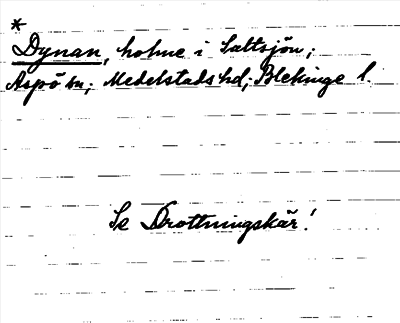 *
Dynan, holme i Saltsjön;
Aspö sn; Medelstads hd; Blekinge l.
Se Drottningskär!